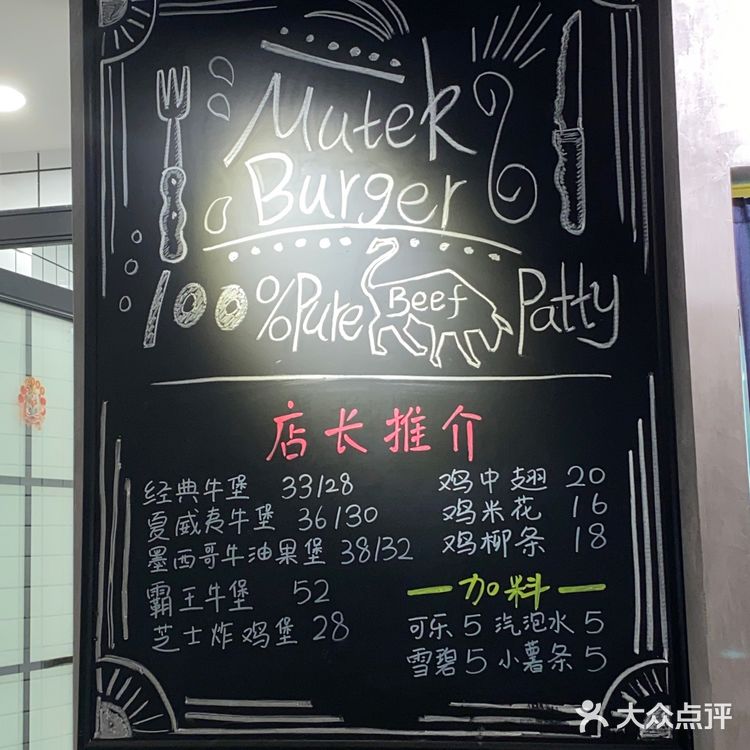 Mutek
Burger
100%Pure Beef Patty
店长推介
经典牛堡 33/28
夏威夷牛堡 36/30
墨西哥牛油果堡 38/32
霸王牛堡 52
芝士炸鸡堡 28
鸡中翅 20
鸡米花 16
鸡柳条 18
加料
可乐5 汽泡水5
雪碧5 小薯条5
大众点评